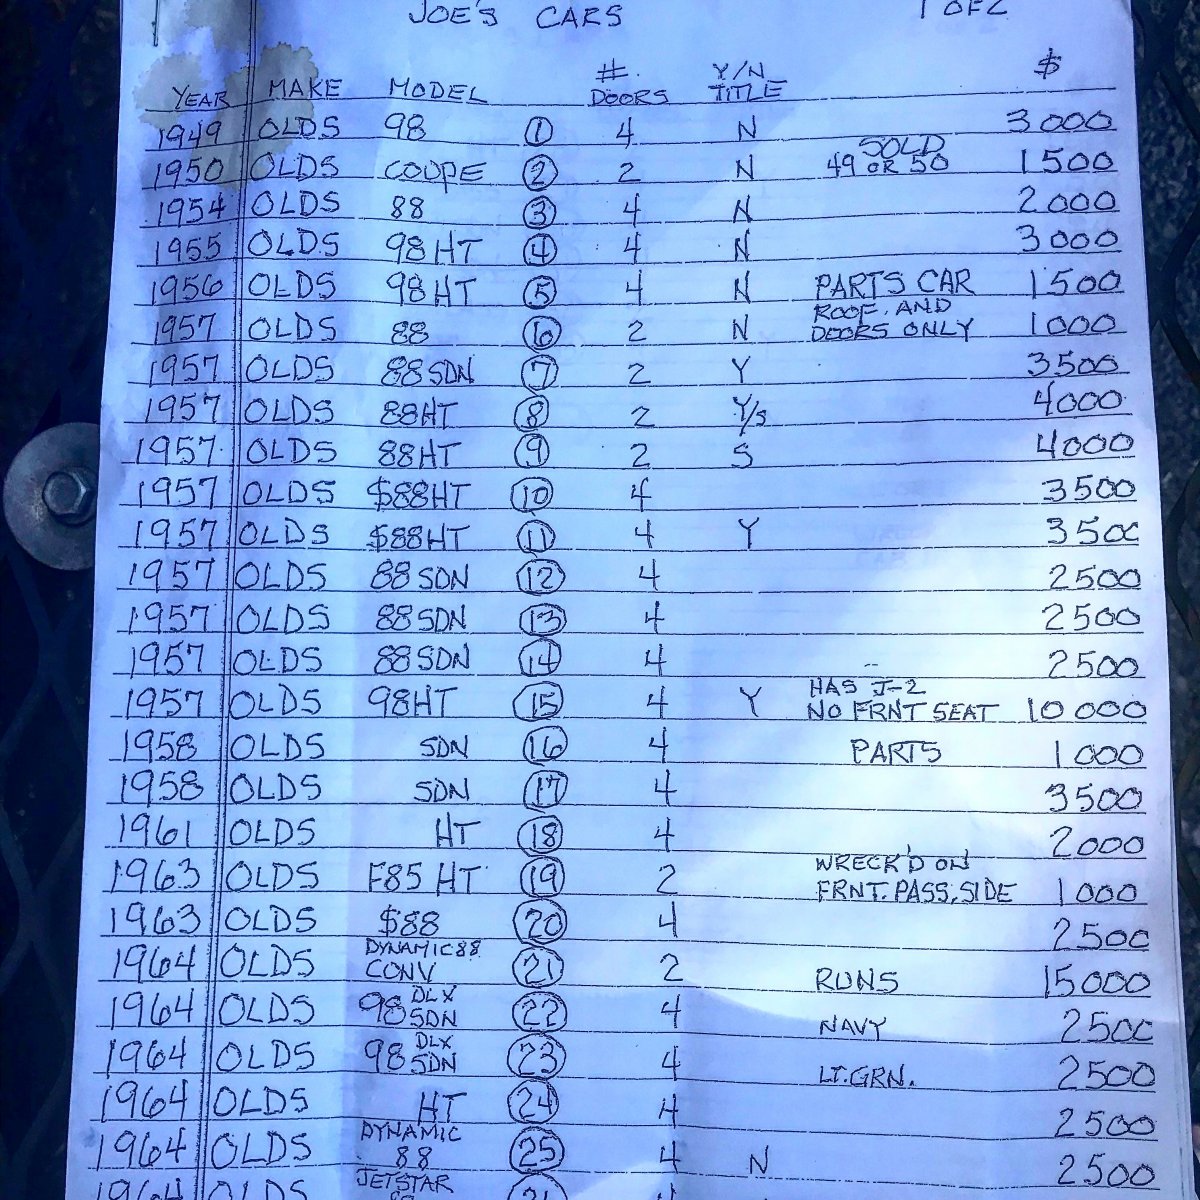 JOE'S CARS 1 OF 2
YEAR MAKE MODEL # DOORS Y/N TITLE $
1949 OLDS 98 1 4 N 3000
1950 OLDS COUPE 2 2 N SOLD 49 OR 50 1500
1954 OLDS 88 3 4 N 2000
1955 OLDS 98 HT 4 4 N 3000
1956 OLDS 98 HT 5 4 N PARTS CAR 1500
1957 OLDS 88 6 2 N ROOF AND DOORS ONLY 1000
1957 OLDS 88 SDN 7 2 Y 3500
1957 OLDS 88HT 8 2 Y/S 4000
1957 OLDS 88HT 9 2 S 4000
1957 OLDS $88HT 10 4 3500
1957 OLDS $88HT 11 4 Y 3500
1957 OLDS 88 SDN 12 4 2500
1957 OLDS 88 SDN 13 4 2500
1957 OLDS 88 SDN 14 4 2500
1957 OLDS 98HT 15 4 Y HAS J-2 NO FRNT SEAT 10000
1958 OLDS SDN 16 4 PARTS 1000
1958 OLDS SDN 17 4 3500
1961 OLDS HT 18 4 2000
1963 OLDS F85 HT 19 2 WRECK'D ON FRNT. PASS. SIDE 1000
1963 OLDS $88 20 4 2500
1964 OLDS DYNAMIC 88 CONV 21 2 RUNS 15000
1964 OLDS 98 DLX SDN 22 4 NAVY 2500
1964 OLDS 98 DLX SDN 23 4 LT. GRN. 2500
1964 OLDS HT 24 4 2500
1964 OLDS DYNAMIC 88 25 4 N 2500
1964 OLDS JETSTAR